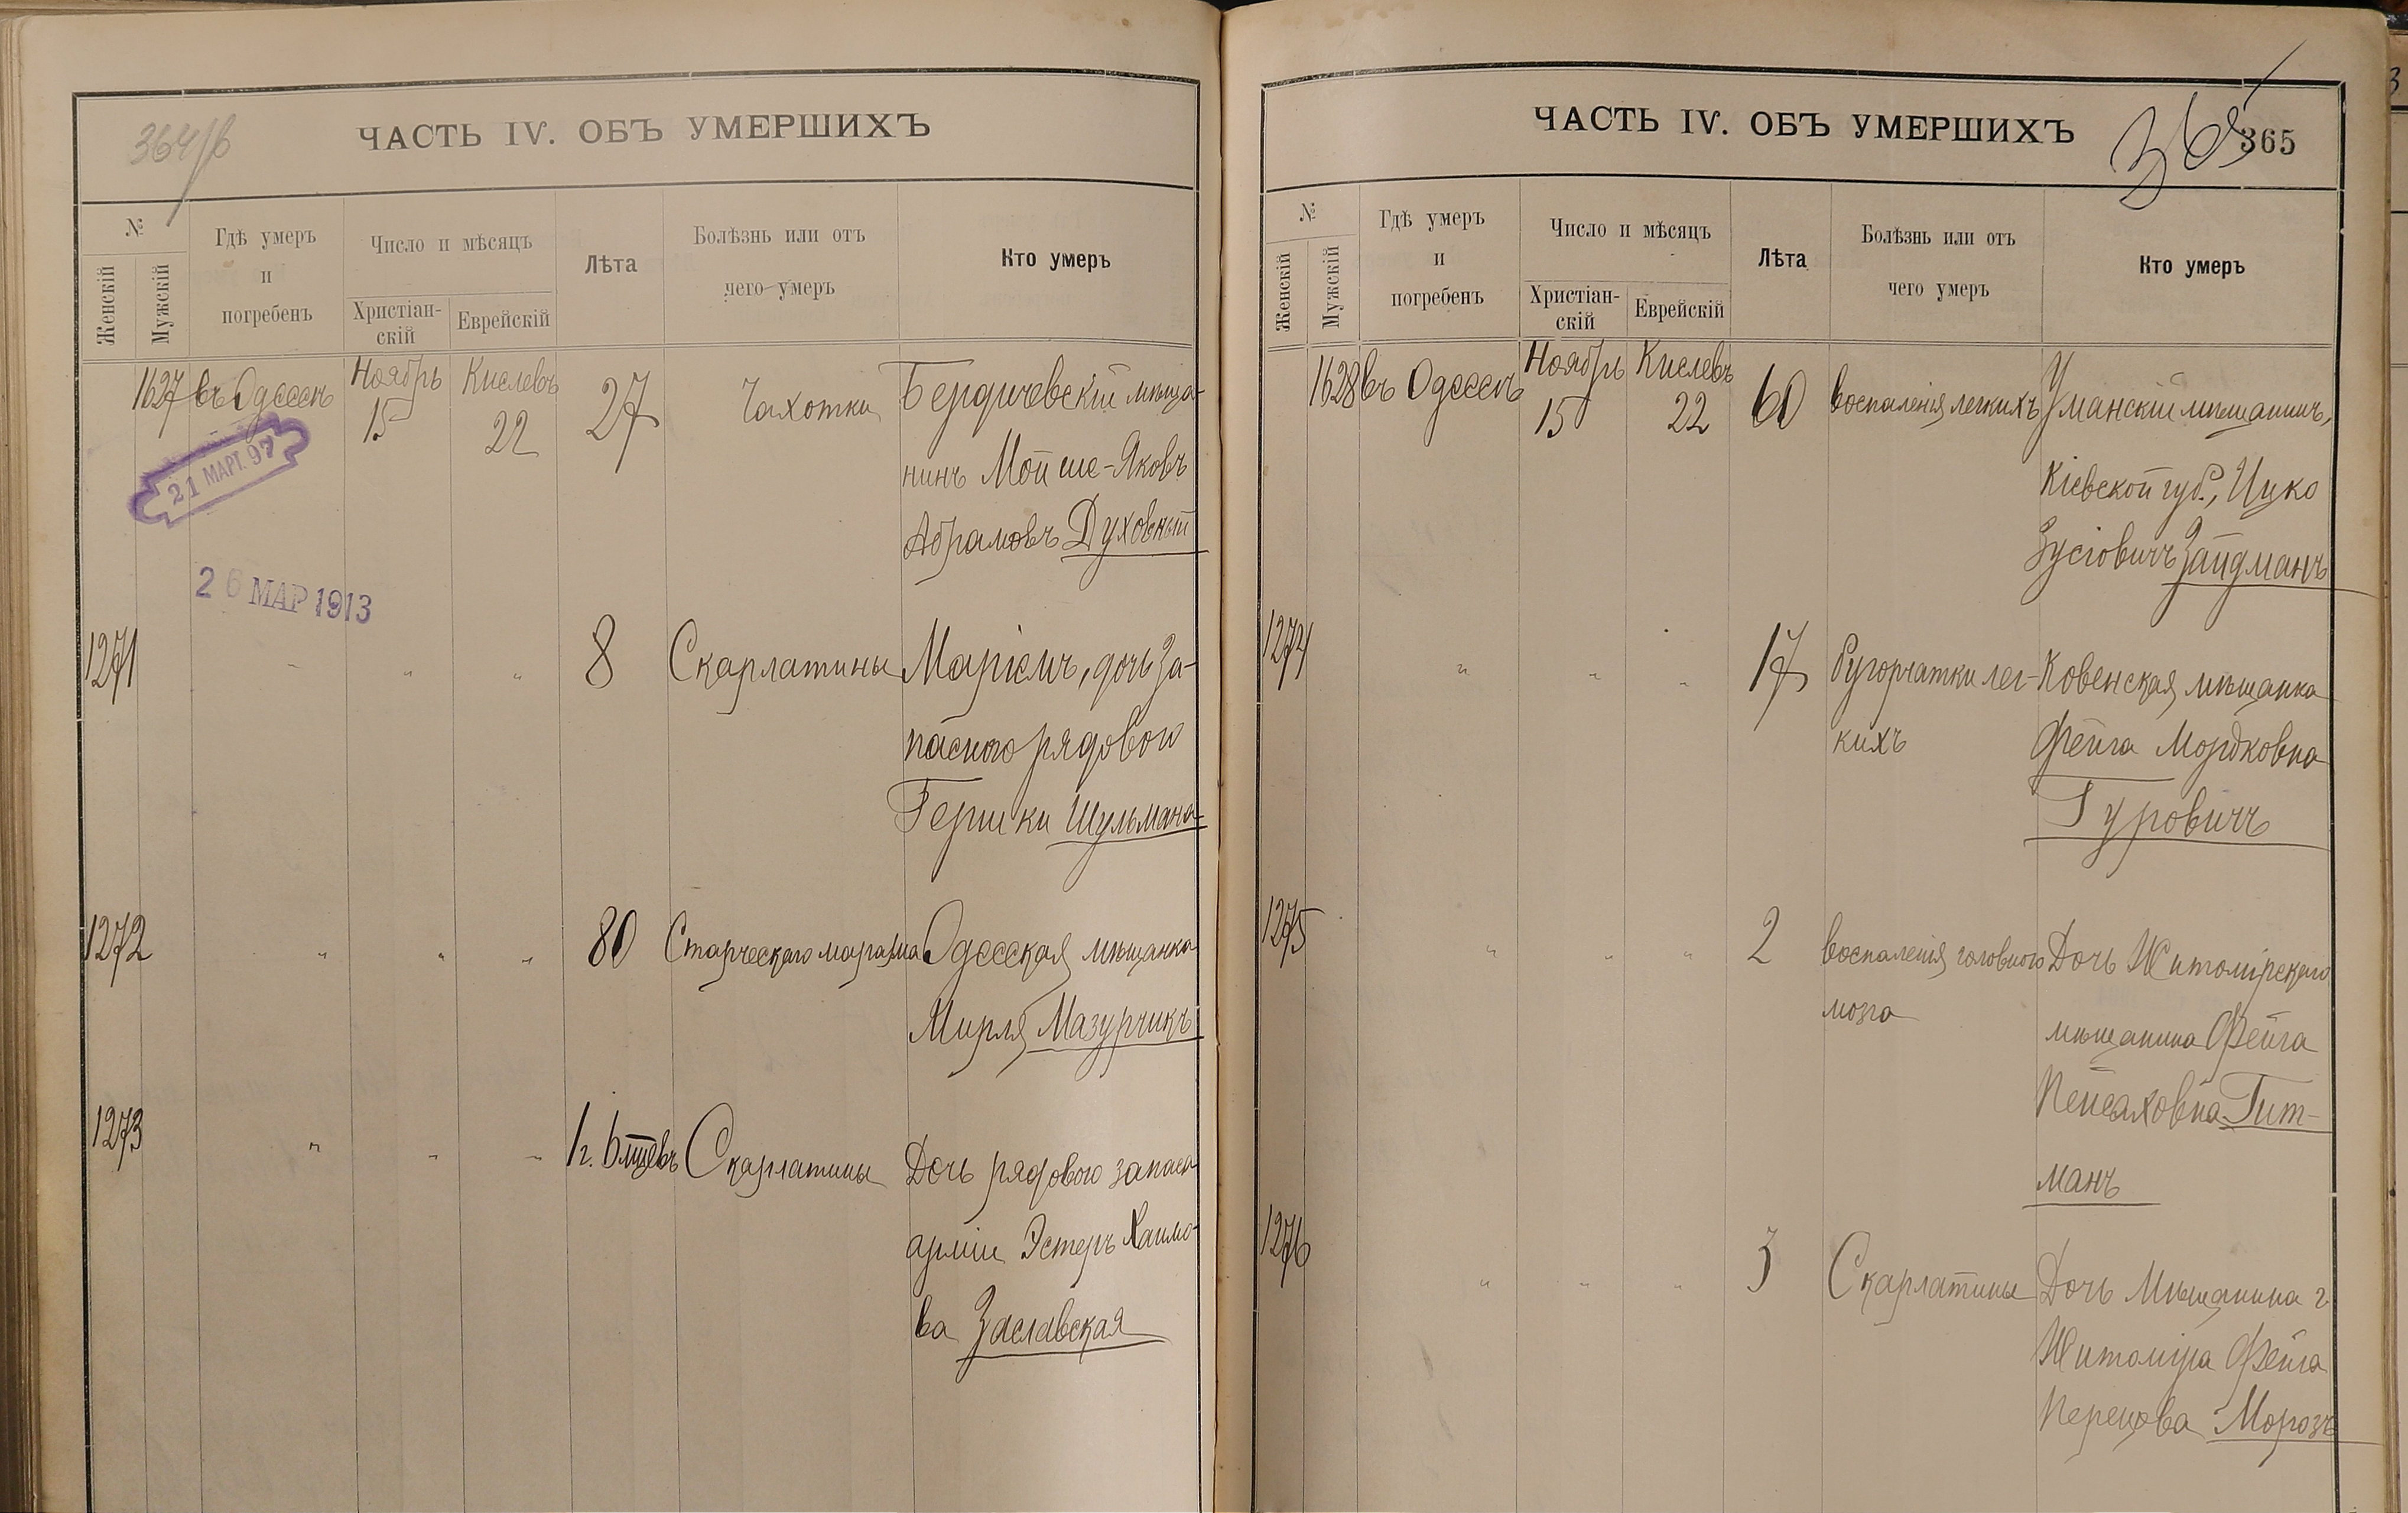 364/в
ЧАСТЬ IV. ОБЪ УМЕРШИХЪ
№
Женскій
Мужскій
Гдѣ умеръ
и
погребенъ
Число и мѣсяцъ
Христіан-
скій
Еврейскій
Лѣта
Болѣзнь или отъ
чего умеръ
Кто умеръ
1627 въ Одессѣ Ноябрь 15 Кислевъ 22 27 Чахотки Бердичевскій мѣща-
нинъ Мойше-Яковъ
Абрамовъ Духовный
21 МАРТ. 97
26 МАР 1913
1271 " " " 8 Скарлатины Маріемъ, дочь за-
пасного рядового
Гершки Шульмана
1272 " " " 80 Старческаго маразма Одесская мѣщанка
Мирля Мазурчикъ
1273 " " " 1 г. 6 мцевъ Скарлатины Дочь рядового запаса
арміи Эстеръ Хаимо-
ва Заславская
ЧАСТЬ IV. ОБЪ УМЕРШИХЪ
365
365
№
Женскій
Мужскій
Гдѣ умеръ
и
погребенъ
Число и мѣсяцъ
Христіан-
скій
Еврейскій
Лѣта
Болѣзнь или отъ
чего умеръ
Кто умеръ
1628 въ Одессѣ Ноябрь 15 Кислевъ 22 60 воспаленія легкихъ Уманскій мѣщанинъ,
Кіевской губ., Ицко
Зусіовичъ Зайдманъ
1274 " " " 17 бугорчатки лег- Ковенская мѣщанка
кихъ Фейга Мордковна
Гуровичъ
1275 " " " 2 воспаленія головного Дочь Житомірскаго
мозга мѣщанина Фейга
Пейсаховна Гит-
манъ
1276 " " " 3 Скарлатины Дочь Мѣщанина г.
Житоміра Фейга
Перецова Морозъ